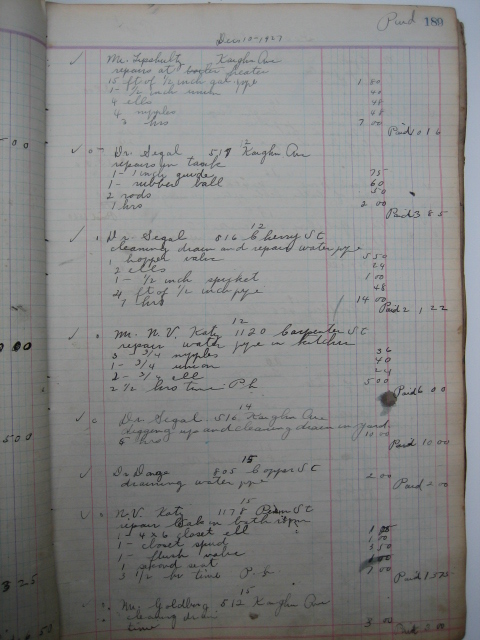 Paid 189
Dec 10-1927
Mr. Lipshultz Kaighn Ave
repairs at heater
15 ft of 1/2 inch gas pipe 1 80
1 - 1/2 inch union 40
4 ells 48
4 nipples 48
3 hrs 7 00
Paid 10 16
Dr Segal 517 Kaighn Ave
repairs in tank
1 - 1 inch guide 75
1 - rubber ball 60
2 rods 50
1 hrs 2 00
Paid 3 85
12
Dr. Segal 516 Cherry St
cleaning drain and repair water pipe
1 hopper valve 5 50
2 ells 24
1 - 1/2 inch spyket 1 00
4 ft of 1/2 inch pipe 48
7 hrs 14 00
Paid 21,22
12
Mr. N. V. Katz 1120 Carpenter St
repair water pipe in kitchen
3 - 3/4 nypples 36
1 - 3/4 union 40
2 - 3/4 ell 24
2 1/2 hrs time P. L. 5 00
Paid 6 00
14
Dr Segal 516 Kaighn Ave
digging up and cleaning drain in yard
5 hrs 10 00
Paid 10 00
15
Dr 805 Copper St
draining water pipe 2 00
Paid 2 00
15
N.V. Katz 1178 St
repair in bath
1 - 4 x 6 closet ell
1 - closet spud
1 - flush valve 3 50
1 - seat
3 1/2 hr time 7 00
Paid
15
Mr. Goldberg 512 Kaighn Ave
cleaning drain
time 3 00
3 25
5 00
50